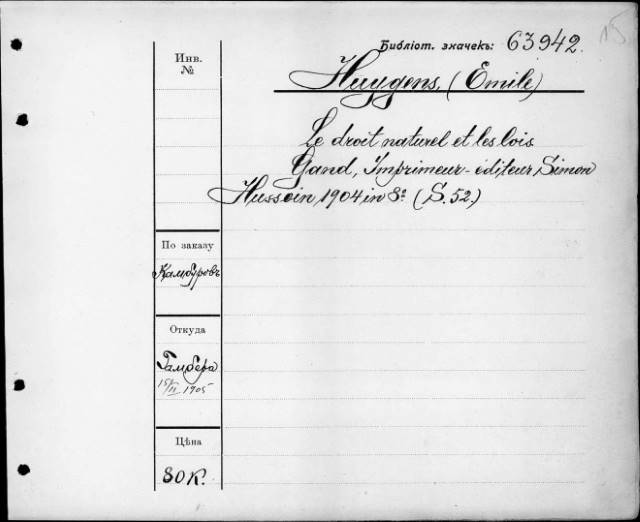 15
Библіот. значекъ: 63942.
Инв.
№
Huygens, (Emile)
Le droit naturel et les lois
Gand, Imprimeur-éditeur Simon
Hussoin, 1904 in 8º (S. 52.)
По заказу
Камбуровъ
Откуда
Гамбера
15/II 1905
Цѣна
80 к.